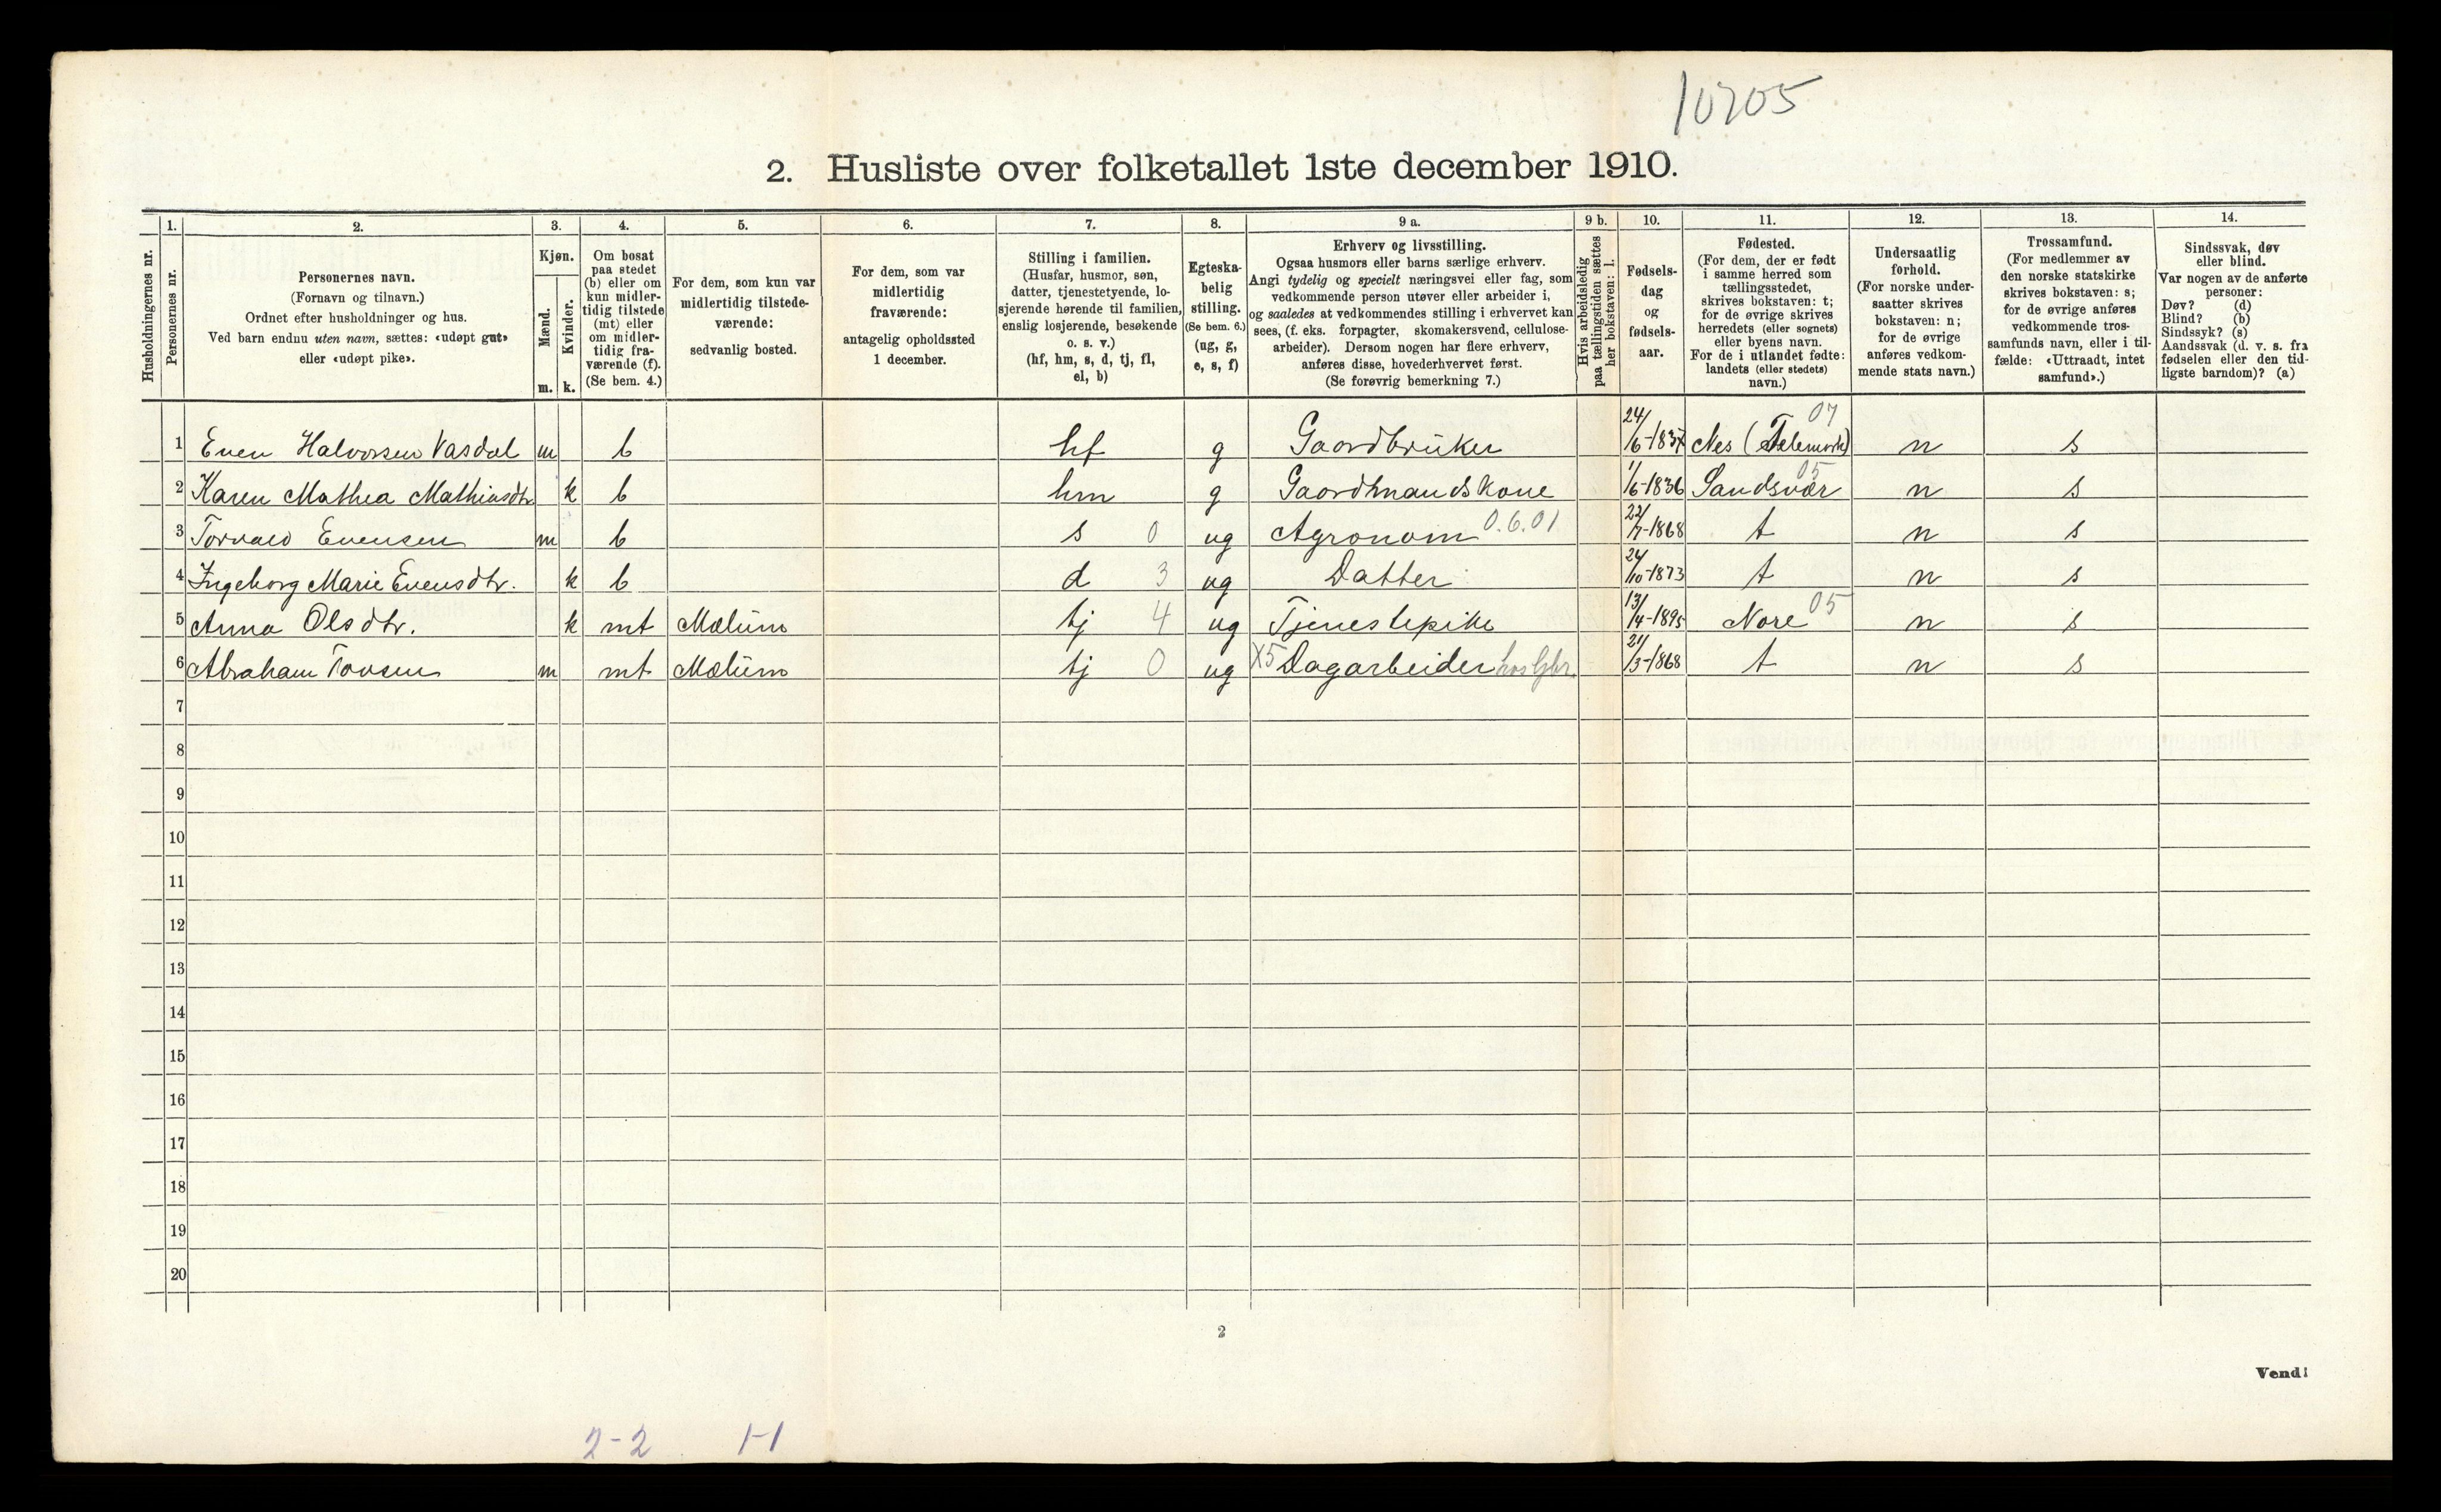 10205
2. Husliste over folketallet 1ste december 1910.
Husholdningernes nr.
1.
Personernes nr.
2.
Personernes navn.
(Fornavn og tilnavn.)
Ordnet efter husholdninger og hus.
Ved barn endnu uten navn, sættes: «udøpt gut»
eller «udøpt pike».
3.
Kjøn.
Mænd.
Kvinder.
m. k.
4.
Om bosat
paa stedet
(b) eller om
kun midler-
tidig tilstede
(mt) eller
om midler-
tidig fra-
værende (f).
(Se bem. 4.)
5.
For dem, som kun var
midlertidig tilstede-
værende:
sedvanlig bosted.
6.
For dem, som var
midlertidig
fraværende:
antagelig opholdssted
1 december.
7.
Stilling i familien.
(Husfar, husmor, søn,
datter, tjenestetyende, lo-
sjerende hørende til familien,
enslig losjerende, besøkende
o. s. v.)
(hf, hm, s, d, tj, fl,
el, b)
8.
Egteska-
belig
stilling.
(Se bem. 6.)
(ug, g,
e, s, f)
9 a.
Erhverv og livsstilling.
Ogsaa husmors eller barns særlige erhverv.
Angi tydelig og specielt næringsvei eller fag, som
vedkommende person utøver eller arbeider i,
og saaledes at vedkommendes stilling i erhvervet kan
sees, (f. eks. forpagter, skomakersvend, cellulose-
arbeider). Dersom nogen har flere erhverv,
anføres disse, hovederhvervet først.
(Se forøvrig bemerkning 7.)
9 b.
Hvis arbeidsledig
paa tællingstiden sættes
her bokstaven: l.
10.
Fødsels-
dag
og
fødsels-
aar.
11.
Fødested.
(For dem, der er født
i samme herred som
tællingsstedet,
skrives bokstaven: t;
for de øvrige skrives
herredets (eller sognets)
eller byens navn.
For de i utlandet fødte:
landets (eller stedets)
navn.)
12.
Undersaatlig
forhold.
(For norske under-
saatter skrives
bokstaven: n;
for de øvrige
anføres vedkom-
mende stats navn.)
13.
Trossamfund.
(For medlemmer av
den norske statskirke
skrives bokstaven: s;
for de øvrige anføres
vedkommende tros-
samfunds navn, eller i til-
fælde: «Uttraadt, intet
samfund».)
14.
Sindssvak, døv
eller blind.
Var nogen av de anførte
personer:
Døv? (d)
Blind? (b)
Sindssyk? (s)
Aandssvak (d. v. s. fra
fødselen eller den tid-
ligste barndom)? (a)
1 Even Halvorsen Vasdal m b hf g Gaardbruker 24/6-1837 Nes (Telemark) 07 n s
2 Karen Mathea Mathiasdtr k b hm g Gaardmandskone 1/6-1836 Sandsvær 05 n s
3 Torvald Evensen m b s 0 ug Agronom 0.6.01 22/7-1868 t n s
4 Ingeborg Marie Evensdtr. k b d 3 ug Datter 24/10-1873 t n s
5 Anna Olsdtr. k mt Mælum tj 4 ug Tjenestepike 13/4-1895 Nore 05 n s
6 Abraham Tovsen m mt Mælum tj 0 ug X5 Dagarbeider hos Gbr. 21/3-1868 t n s
7
8
9
10
11
12
13
14
15
16
17
18
19
20
2
Vend!
2-2 1-1